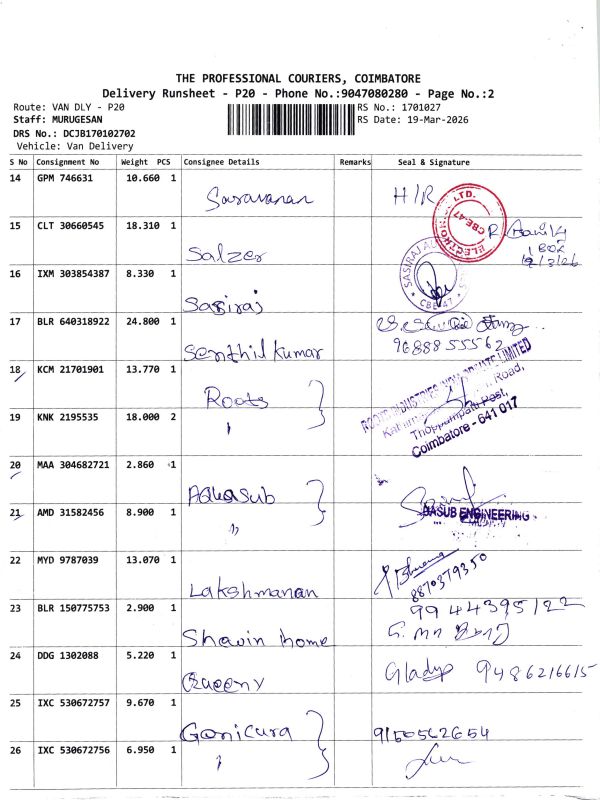 THE PROFESSIONAL COURIERS, COIMBATORE
Delivery Runsheet - P20 - Phone No.:9047080280 - Page No.:2
Route: VAN DLY - P20 RS No.: 1701027
Staff: MURUGESAN RS Date: 19-Mar-2026
DRS No.: DCJB170102702
Vehicle: Van Delivery
S No Consignment No Weight PCS Consignee Details Remarks Seal & Signature
14 GPM 746631 10.660 1 Saravanan H/R
LTD. CBE-47
15 CLT 30660545 18.310 1 Salzer
1 BOX
19/3/26
16 IXM 303854387 8.330 1 Sasiraj
SASIRAJ CBE-47
17 BLR 640318922 24.800 1 Senthil Kumar
9688855562
18 KCM 21701901 13.770 1 Roots
ROOTS INDUSTRIES INDIA PRIVATE LIMITED
Road,
Thoppampatti Post,
Coimbatore - 641 017
19 KNK 2195535 18.000 2 "
20 MAA 304682721 2.860 1 Aquasub
21 AMD 31582456 8.900 1 "
AQUASUB ENGINEERING
22 MYD 9787039 13.070 1 Lakshmanan
8870379350
23 BLR 150775753 2.900 1 Shavin home
9944395122
24 DDG 1302088 5.220 1 Queeny
Gladys 9486216615
25 IXC 530672757 9.670 1 Ganicura
9150562654
26 IXC 530672756 6.950 1 "